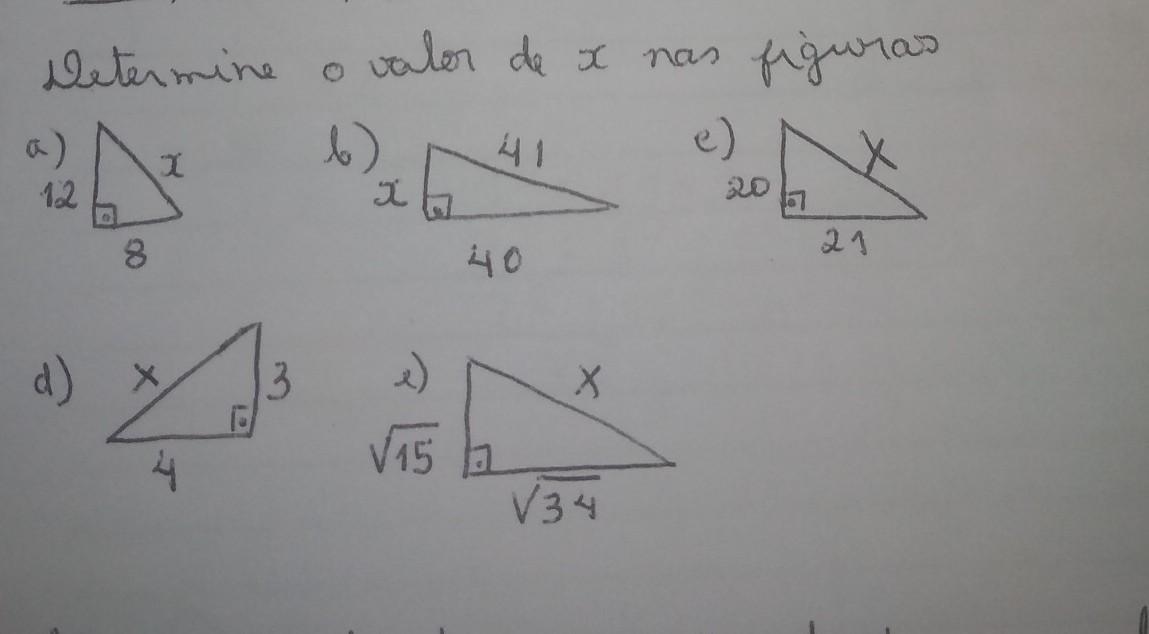 Determine o valor de x nas figuras
a) 12 x 8
b) x 41 40
c) 20 x 21
d) x 3 4
e) √15 x √34